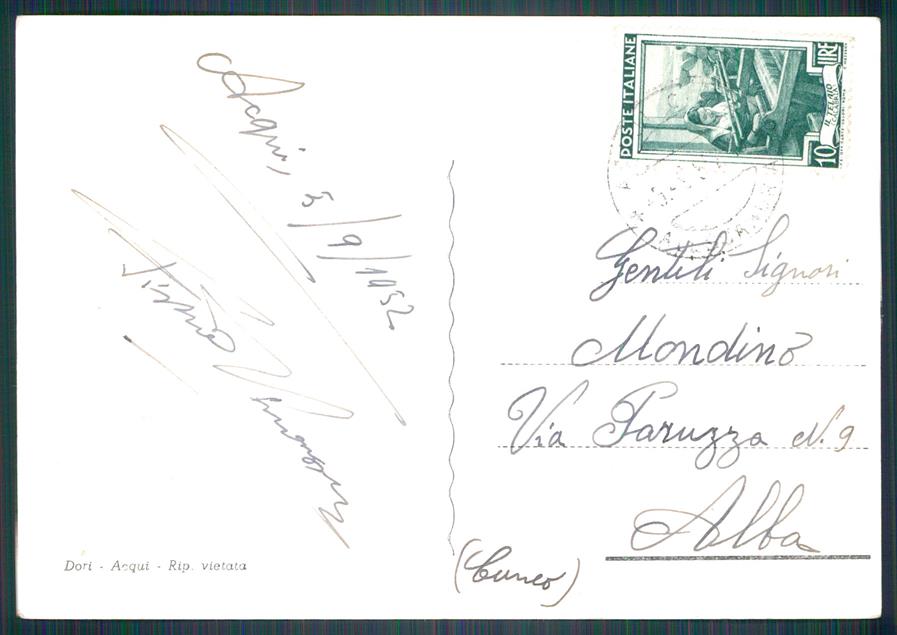 Acqui, 5/9/1952
Dori - Acqui - Rip. vietata
POSTE ITALIANE
10 LIRE
IL TELAIO
CALABRIA
Gentili Signori
Mondino
Via Paruzza N. 9
Alba
(Cuneo)